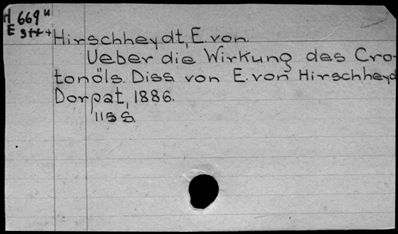 H 669u
E stt+
Hirschheydt, E. von.
Ueber die Wirkung des Cro-
tonöls. Diss von E. von Hirschheyd
Dorpat, 1886.
115 S.